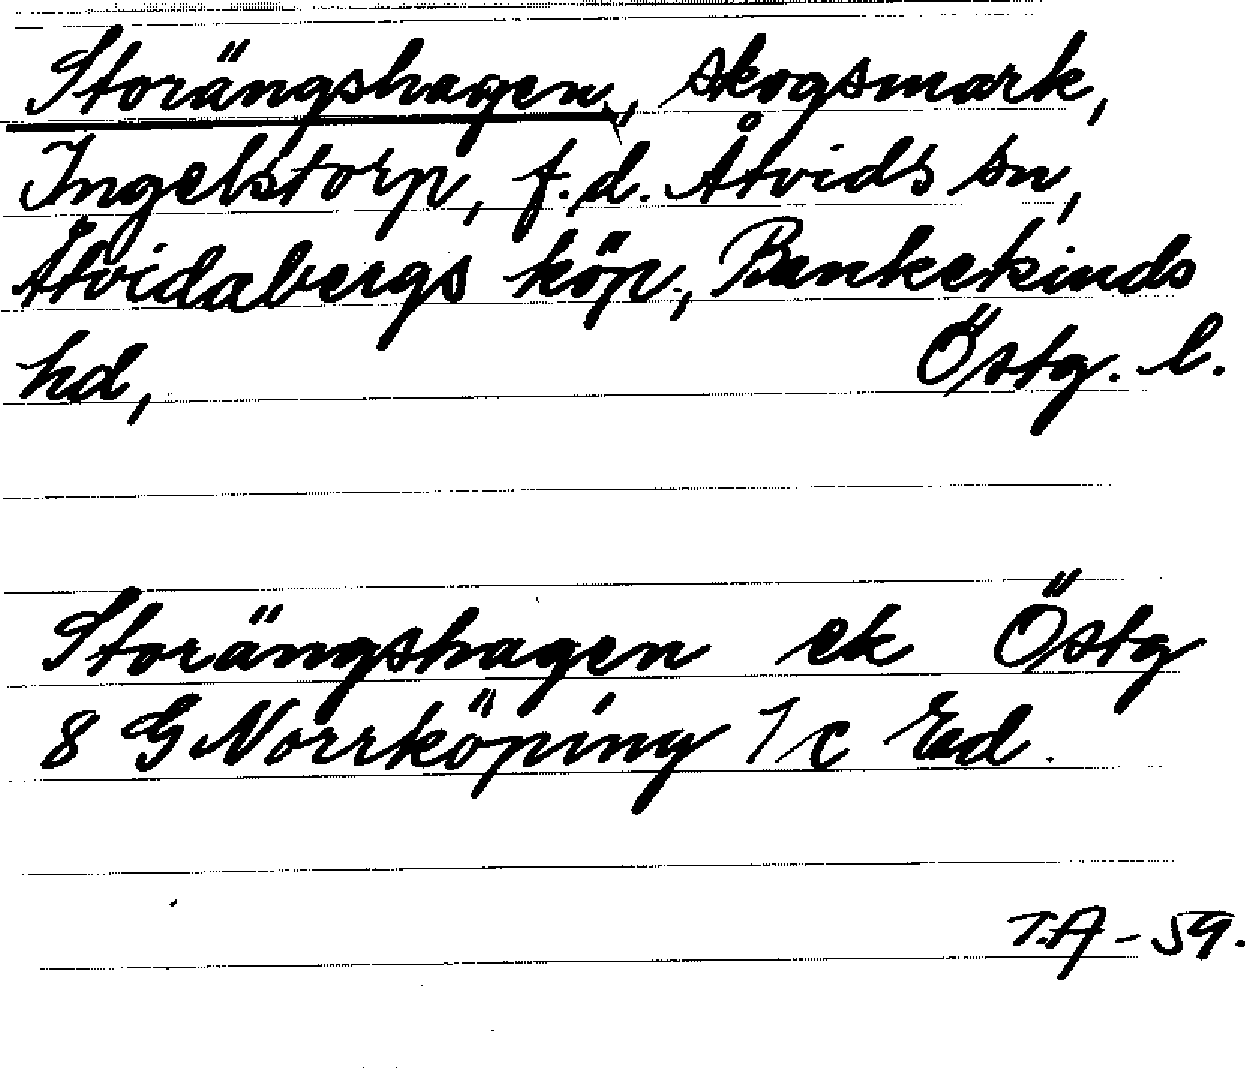 Storängshagen, skogsmark,
Ingelstorp, f.d. Åtvids sn,
Åtvidabergs köp., Bankekinds
hd, Östg. l.
Storängshagen ek Östg
8 G Norrköping 1/c Ed.
T.A - 59.